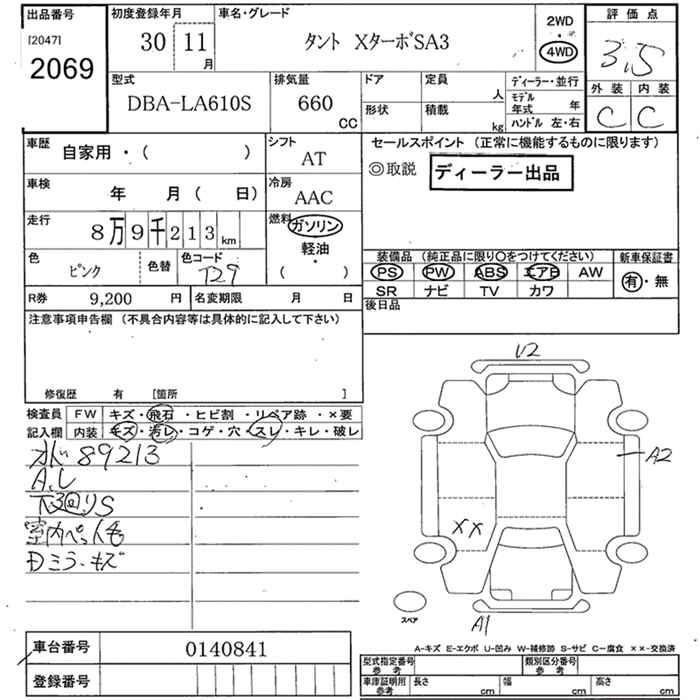 出品番号 初度登録年月 車名・グレード 2WD 評価点
[2047] ・
2069 30 11月 タント XターボSA3 4WD 3.5
型式 排気量 ドア 定員 人 ディーラー・並行 外装 内装
DBA-LA610S 660 CC 形状 積載 kg モデル年式 年 C C
ハンドル 左・右
車歴 自家用・( ) シフト AT セールスポイント (正常に機能するものに限ります)
◎取説 ディーラー出品
車検 年 月( 日) 冷房 AAC
走行 8万9千213km 燃料 ガソリン
軽油
・
( )
色 ピンク 色替 色コード T29
装備品 (純正品に限り○をつけてください) 新車保証書
PS PW ABS エアB AW 有・無
SR ナビ TV カワ
R券 9,200 円 名変期限 月 日 後日品
注意事項申告欄 (不具合内容等は具体的に記入して下さい)
修復歴 有 [箇所 ]
検査員 FW キズ・飛石・ヒビ割・リペア跡・×要
記入欄 内装 キズ・汚レ・コゲ・穴・スレ・キレ・破レ
89213
A,U
下回りS
室内
Dミラーキズ
U2
A2
XX
A1
スペア
車台番号 0140841
登録番号
A-キズ E-エクボ U-凹み W-補修跡 S-サビ C-腐食 ××-交換済
型式指定番号 参考 類別区分番号 参考
車庫証明用 参考 長さ cm 幅 cm 高さ cm